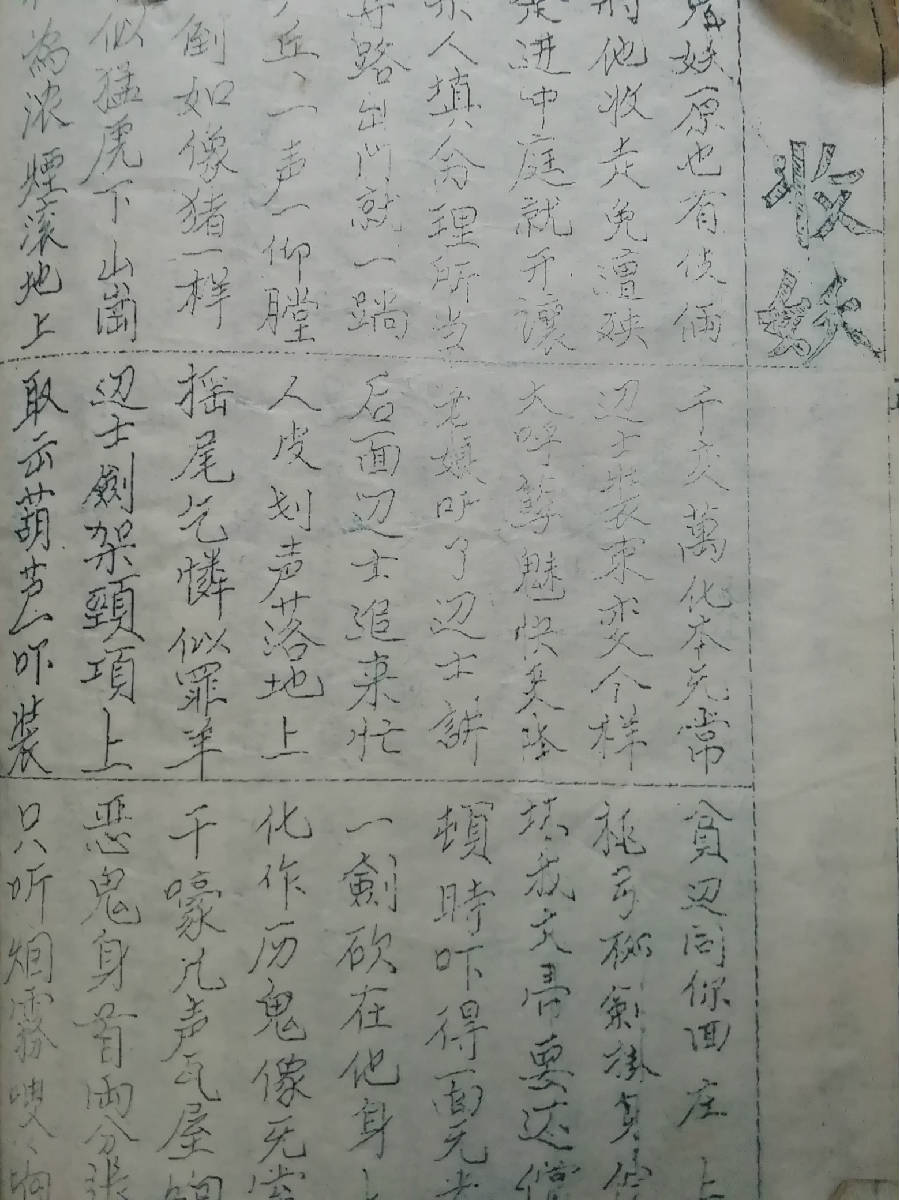 收妖
妖原也有伎俩
千变萬化本无常
貧辺同你回庄上
他收走免遭殃
辺士装束变个样
剑掛身
进中庭就开讓
大呼孽魅快
坏我文帚要还償
人填命理所当
老娘听了辺士讲
頓時吓得面无
路出门就一趟
后面辺士追来忙
一劍砍在他身
丘丶一声一仰膛
人皮划声落地上
化作历鬼像无
倒如像猪一样
摇尾乞憐似罪羊
千嚎几声瓦屋响
似猛虎下山崗
辺士劍架頸項上
恶鬼身首両分张
為浓煙滚地上
取云葫芦一吓装
只听烟雾嗖丶响